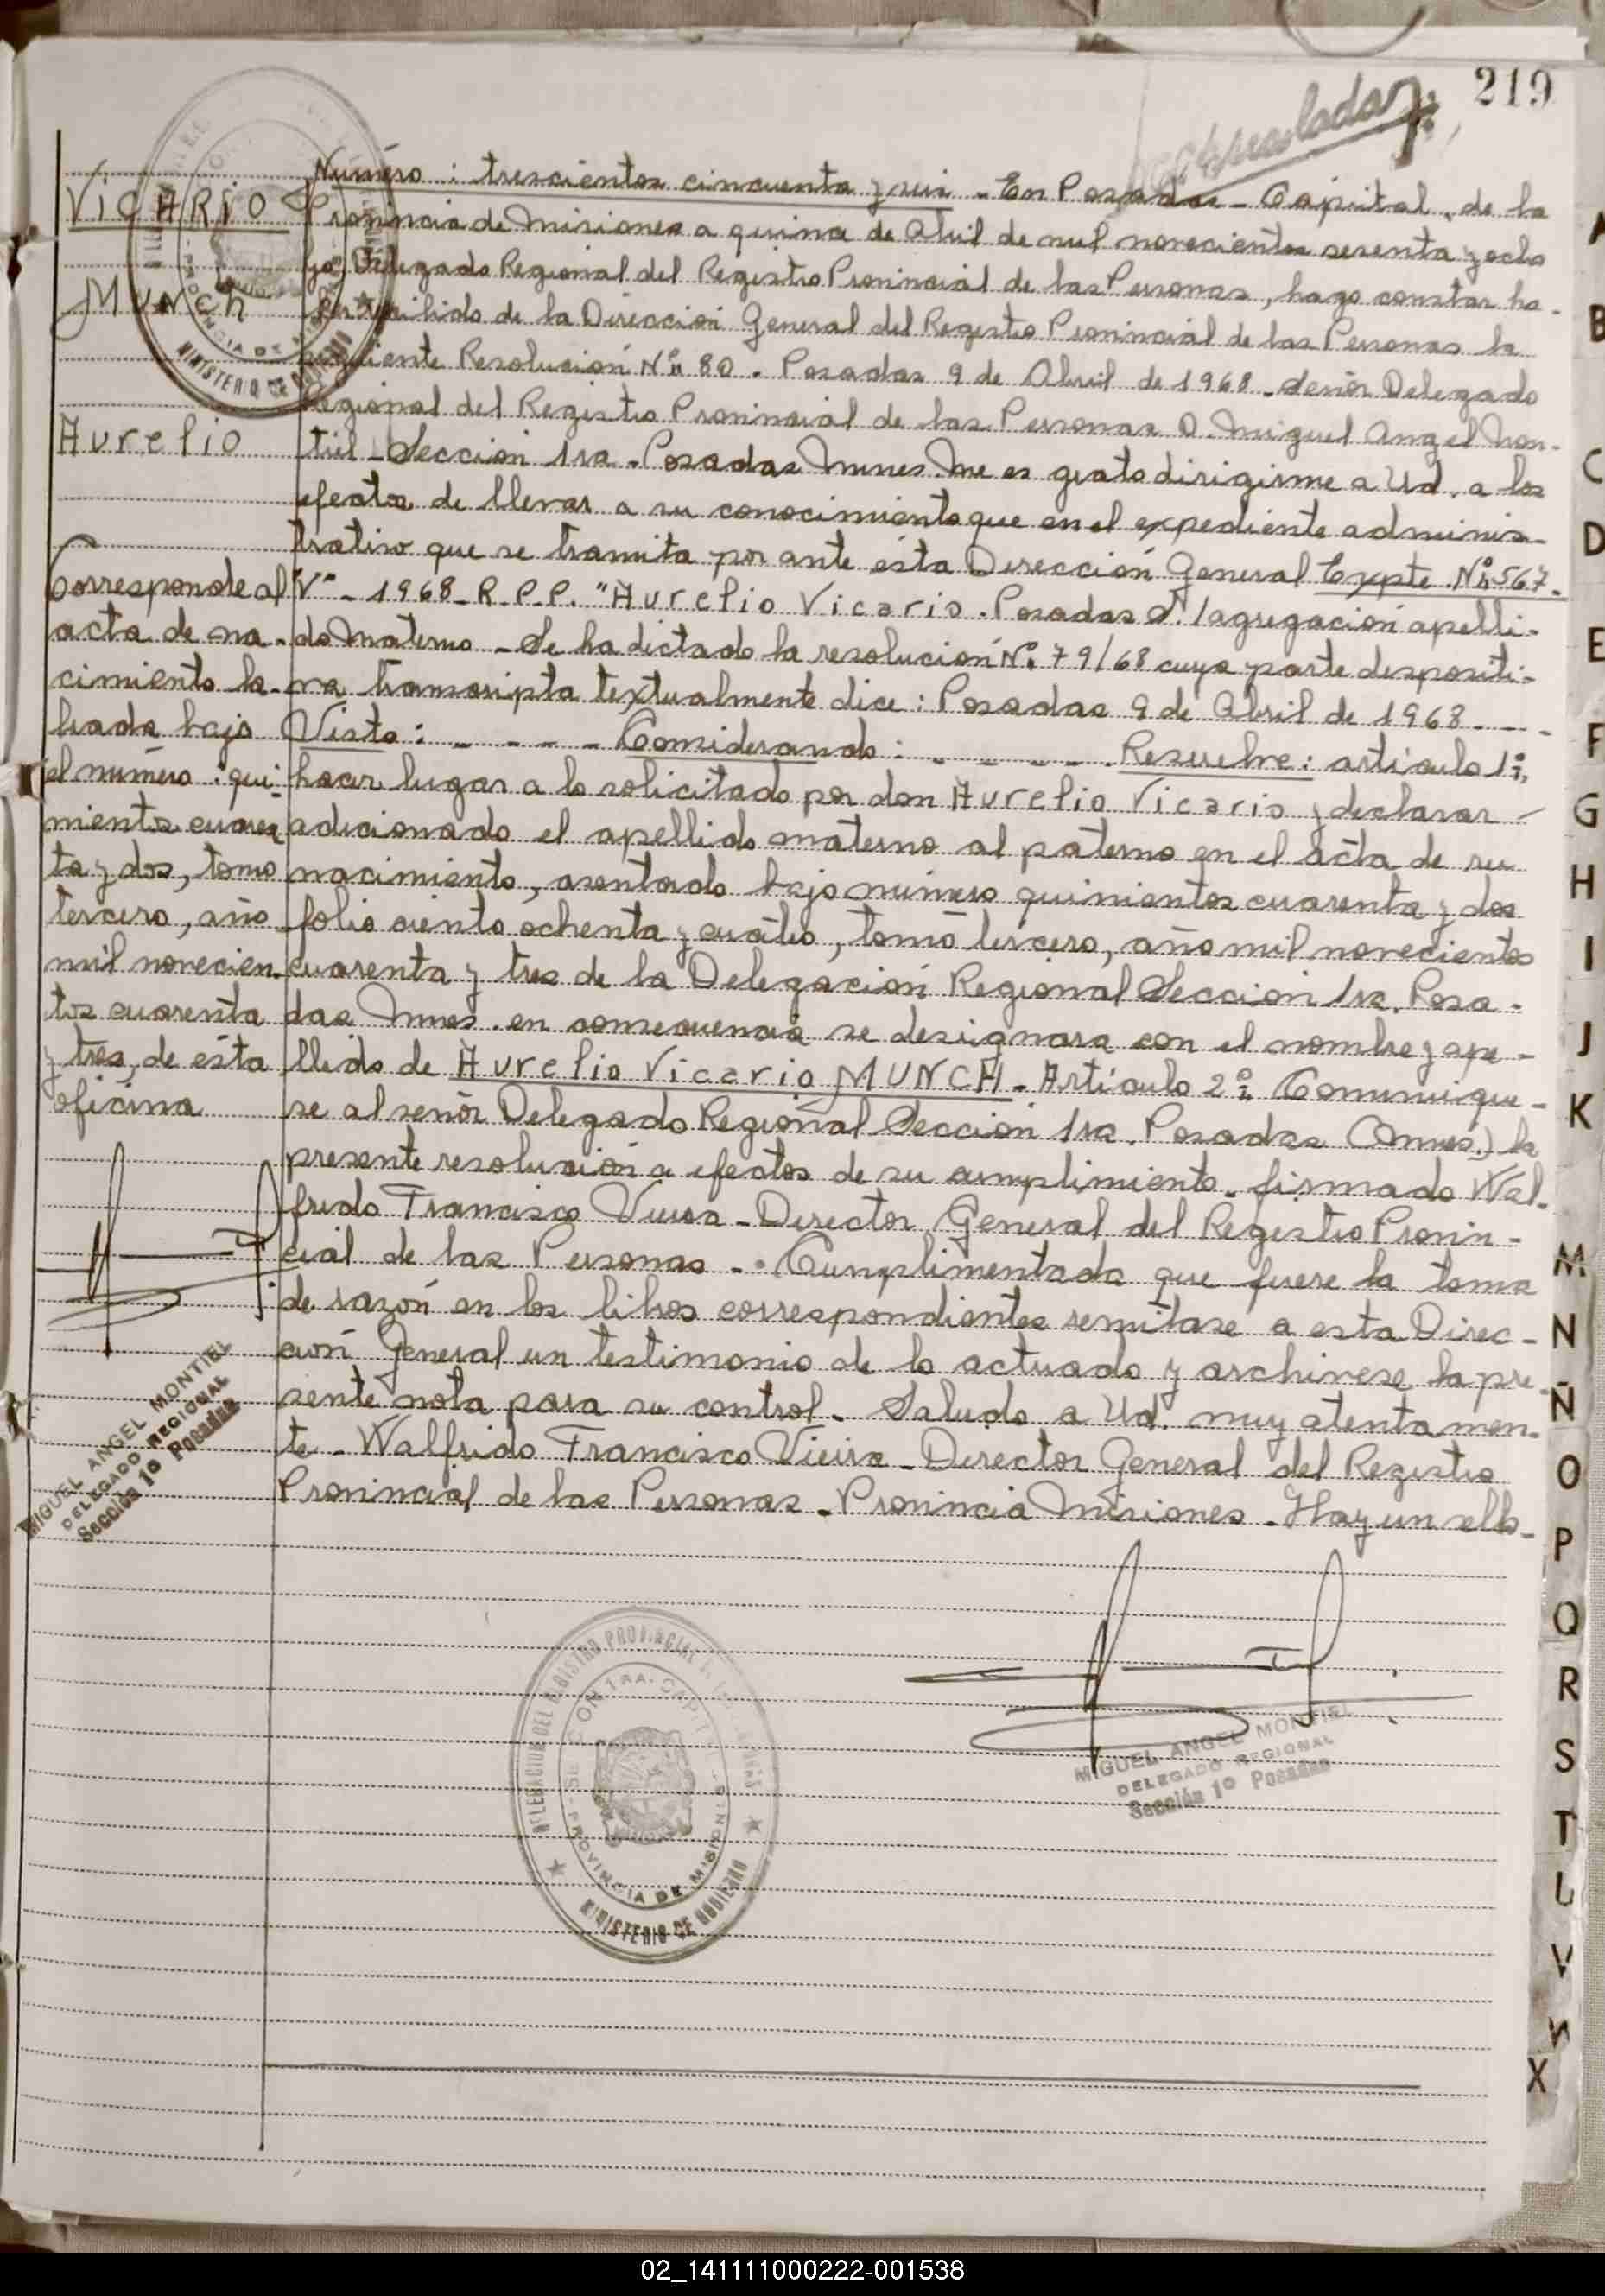 219
Número : trescientos cincuenta y seis - En Posadas - Capital, de la
Provincia de Misiones a quince de Abril de mil novecientos sesenta y ocho
yo, Delegado Regional del Registro Provincial de las Personas, hago constar ha-
ber recibido de la Dirección General del Registro Provincial de las Personas la
siguiente Resolución Nº 80 - Posadas 9 de Abril de 1968 - Señor Delegado
Regional del Registro Provincial de las Personas D. Miguel Angel Mon-
tiel - Sección 1ra - Posadas Mnes. Me es grato dirigirme a Ud. a los
efectos de llevar a su conocimiento que en el expediente adminis-
trativo que se tramita por ante ésta Dirección General Expte Nº 567-
"V" - 1968 - R.P.P. "Aurelio Vicario - Posadas S/ agregación apelli-
do Materno - Se ha dictado la resolución Nº 79/68 cuya parte dispositi-
va transcripta textualmente dice : Posadas 9 de Abril de 1968 - - -
Visto : - - - - Considerando : - - - - - Resuelve : artículo 1º,
hacer lugar a lo solicitado por don Aurelio Vicario y declarar
adicionado el apellido materno al paterno en el acta de su
nacimiento, asentado bajo número quinientos cuarenta y dos
folio ciento ochenta y cuatro, tomo tercero, año mil novecientos
cuarenta y tres de la Delegación Regional Sección 1ra. Posa-
das Mnes. en consecuencia se designara con el nombre y ape-
llido de Aurelio Vicario MUNCH - Artículo 2º, Comunique-
se al señor Delegado Regional Sección 1ra. Posadas (Mnes.) la
presente resolución a efectos de su cumplimiento - firmado Wal-
frido Francisco Vieira - Director General del Registro Provin-
cial de las Personas - . Cumplimentada que fuere la toma
de razón en los libros correspondientes remítase a esta Direc-
ción General un testimonio de lo actuado y archivese la pre-
sente nota para su control - Saludo a Ud. muy atentamen-
te - Walfrido Francisco Vieira - Director General del Registro
Provincial de las Personas - Provincia Misiones - Hay un sello -
VICARIO
Munch
Aurelio
Corresponde al
acta de na-
cimiento la-
brada bajo
el número : qui-
nientos cuaren
ta y dos, tomo
tercero, año
mil novecien-
tos cuarenta
y tres, de ésta
oficina
MIGUEL ANGEL MONTIEL
DELEGADO REGIONAL
Sección 1º Posadas
MIGUEL ANGEL MONTIEL
DELEGADO REGIONAL
Sección 1º Posadas
SECCION 1RA. CAPITAL
PROVINCIA DE MISIONES
MINISTERIO DE GOBIERNO
MINISTERIO DE GOBIERNO
A
B
C
D
E
F
G
H
I
J
K
M
N
Ñ
O
P
Q
R
S
T
U
V
W
X
02_141111000222-001538